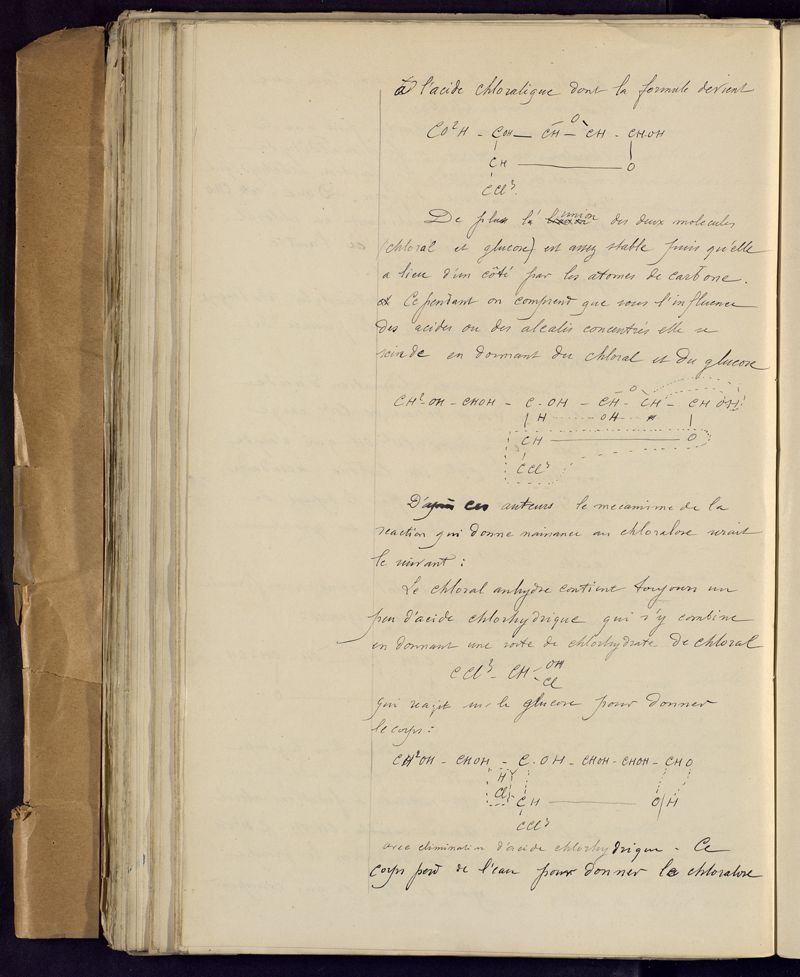 à l'acide chloralique dont la formule devient
CO²H - COH — CH — CH - CHOH
O
CH ——— O
CCl³.
De plus la liaison union des deux molécules
(chloral et glucose) est assez stable puis qu'elle
a lieu d'un côté par les atomes de carbone.
Cependant on comprend que sous l'influence
des acides ou des alcalis concentrés elle se
scinde en donnant du chloral et du glucose
O
CH²OH - CHOH - C·OH - CH - CH - CH OH
H OH H
CH ——— O
CCl³
D'après ces auteurs le mecanisme de la
reaction qui donne naissance au chloralose serait
le suivant :
Le chloral anhydre contient toujours un
peu d'acide chlorhydrique qui s'y combine
en donnant une sorte de chlorhydrate de chloral
CCl³ - CH OH
Cl
qui reagit sur le glucose pour donner
le corps :
CH²OH - CHOH - C·OH - CHOH - CHOH - CHO
H
Cl
CH ——— O H
CCl³
avec elimination d'acide chlorhydrique - Ce
corps perd de l'eau pour donner le chloralose